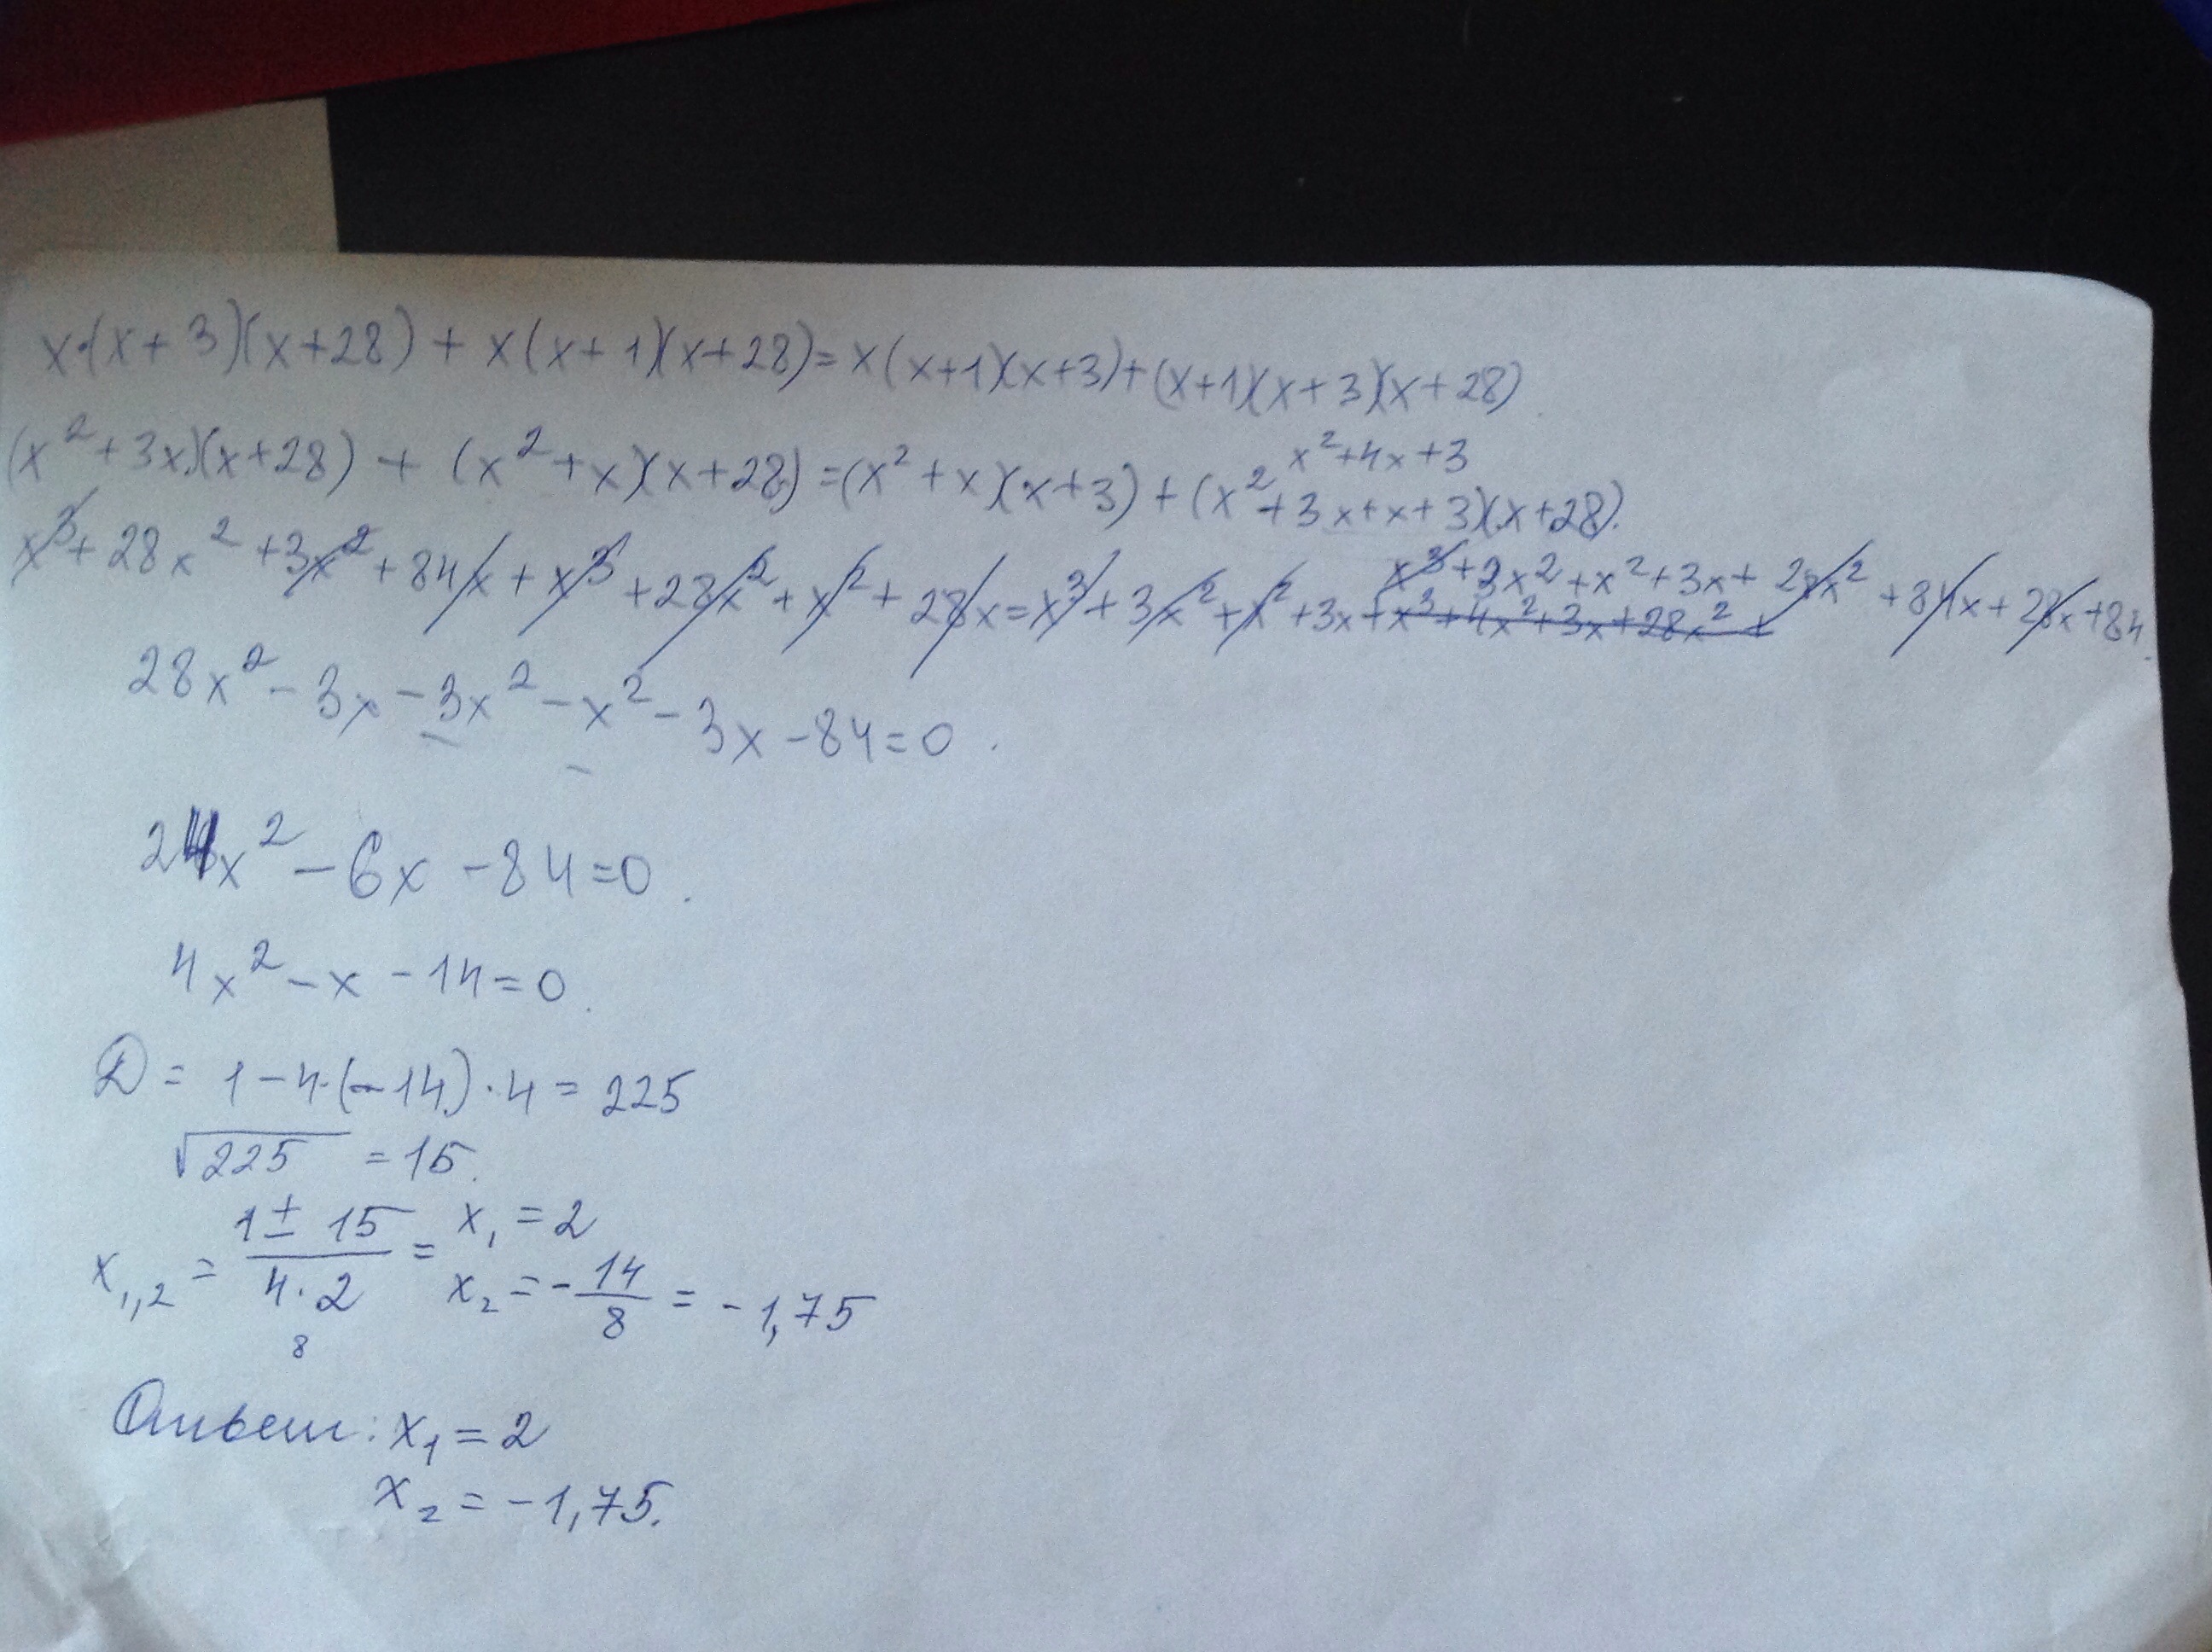 x·(x+3)(x+28) + x(x+1)(x+28) = x(x+1)(x+3) + (x+1)(x+3)(x+28)
x²+4x+3
(x²+3x)(x+28) + (x²+x)(x+28) = (x²+x)(x+3) + (x²+3x+x+3)(x+28).
x³+28x²+3x²+84x+x³+28x²+x²+28x = x³+3x²+x²+3x+x³+3x²+x²+3x+28x²+84x+28x+84
x³+4x²+3x+28x²+
28x²-3x-3x²-x²-3x-84=0.
24x²-6x-84=0.
4x²-x-14=0.
D = 1-4·(-14)·4 = 225
√225 = 15.
x₁,₂ = (1±15)/(4·2) = x₁ = 2
8
x₂ = -14/8 = -1,75
Ответ: x₁ = 2
x₂ = -1,75.